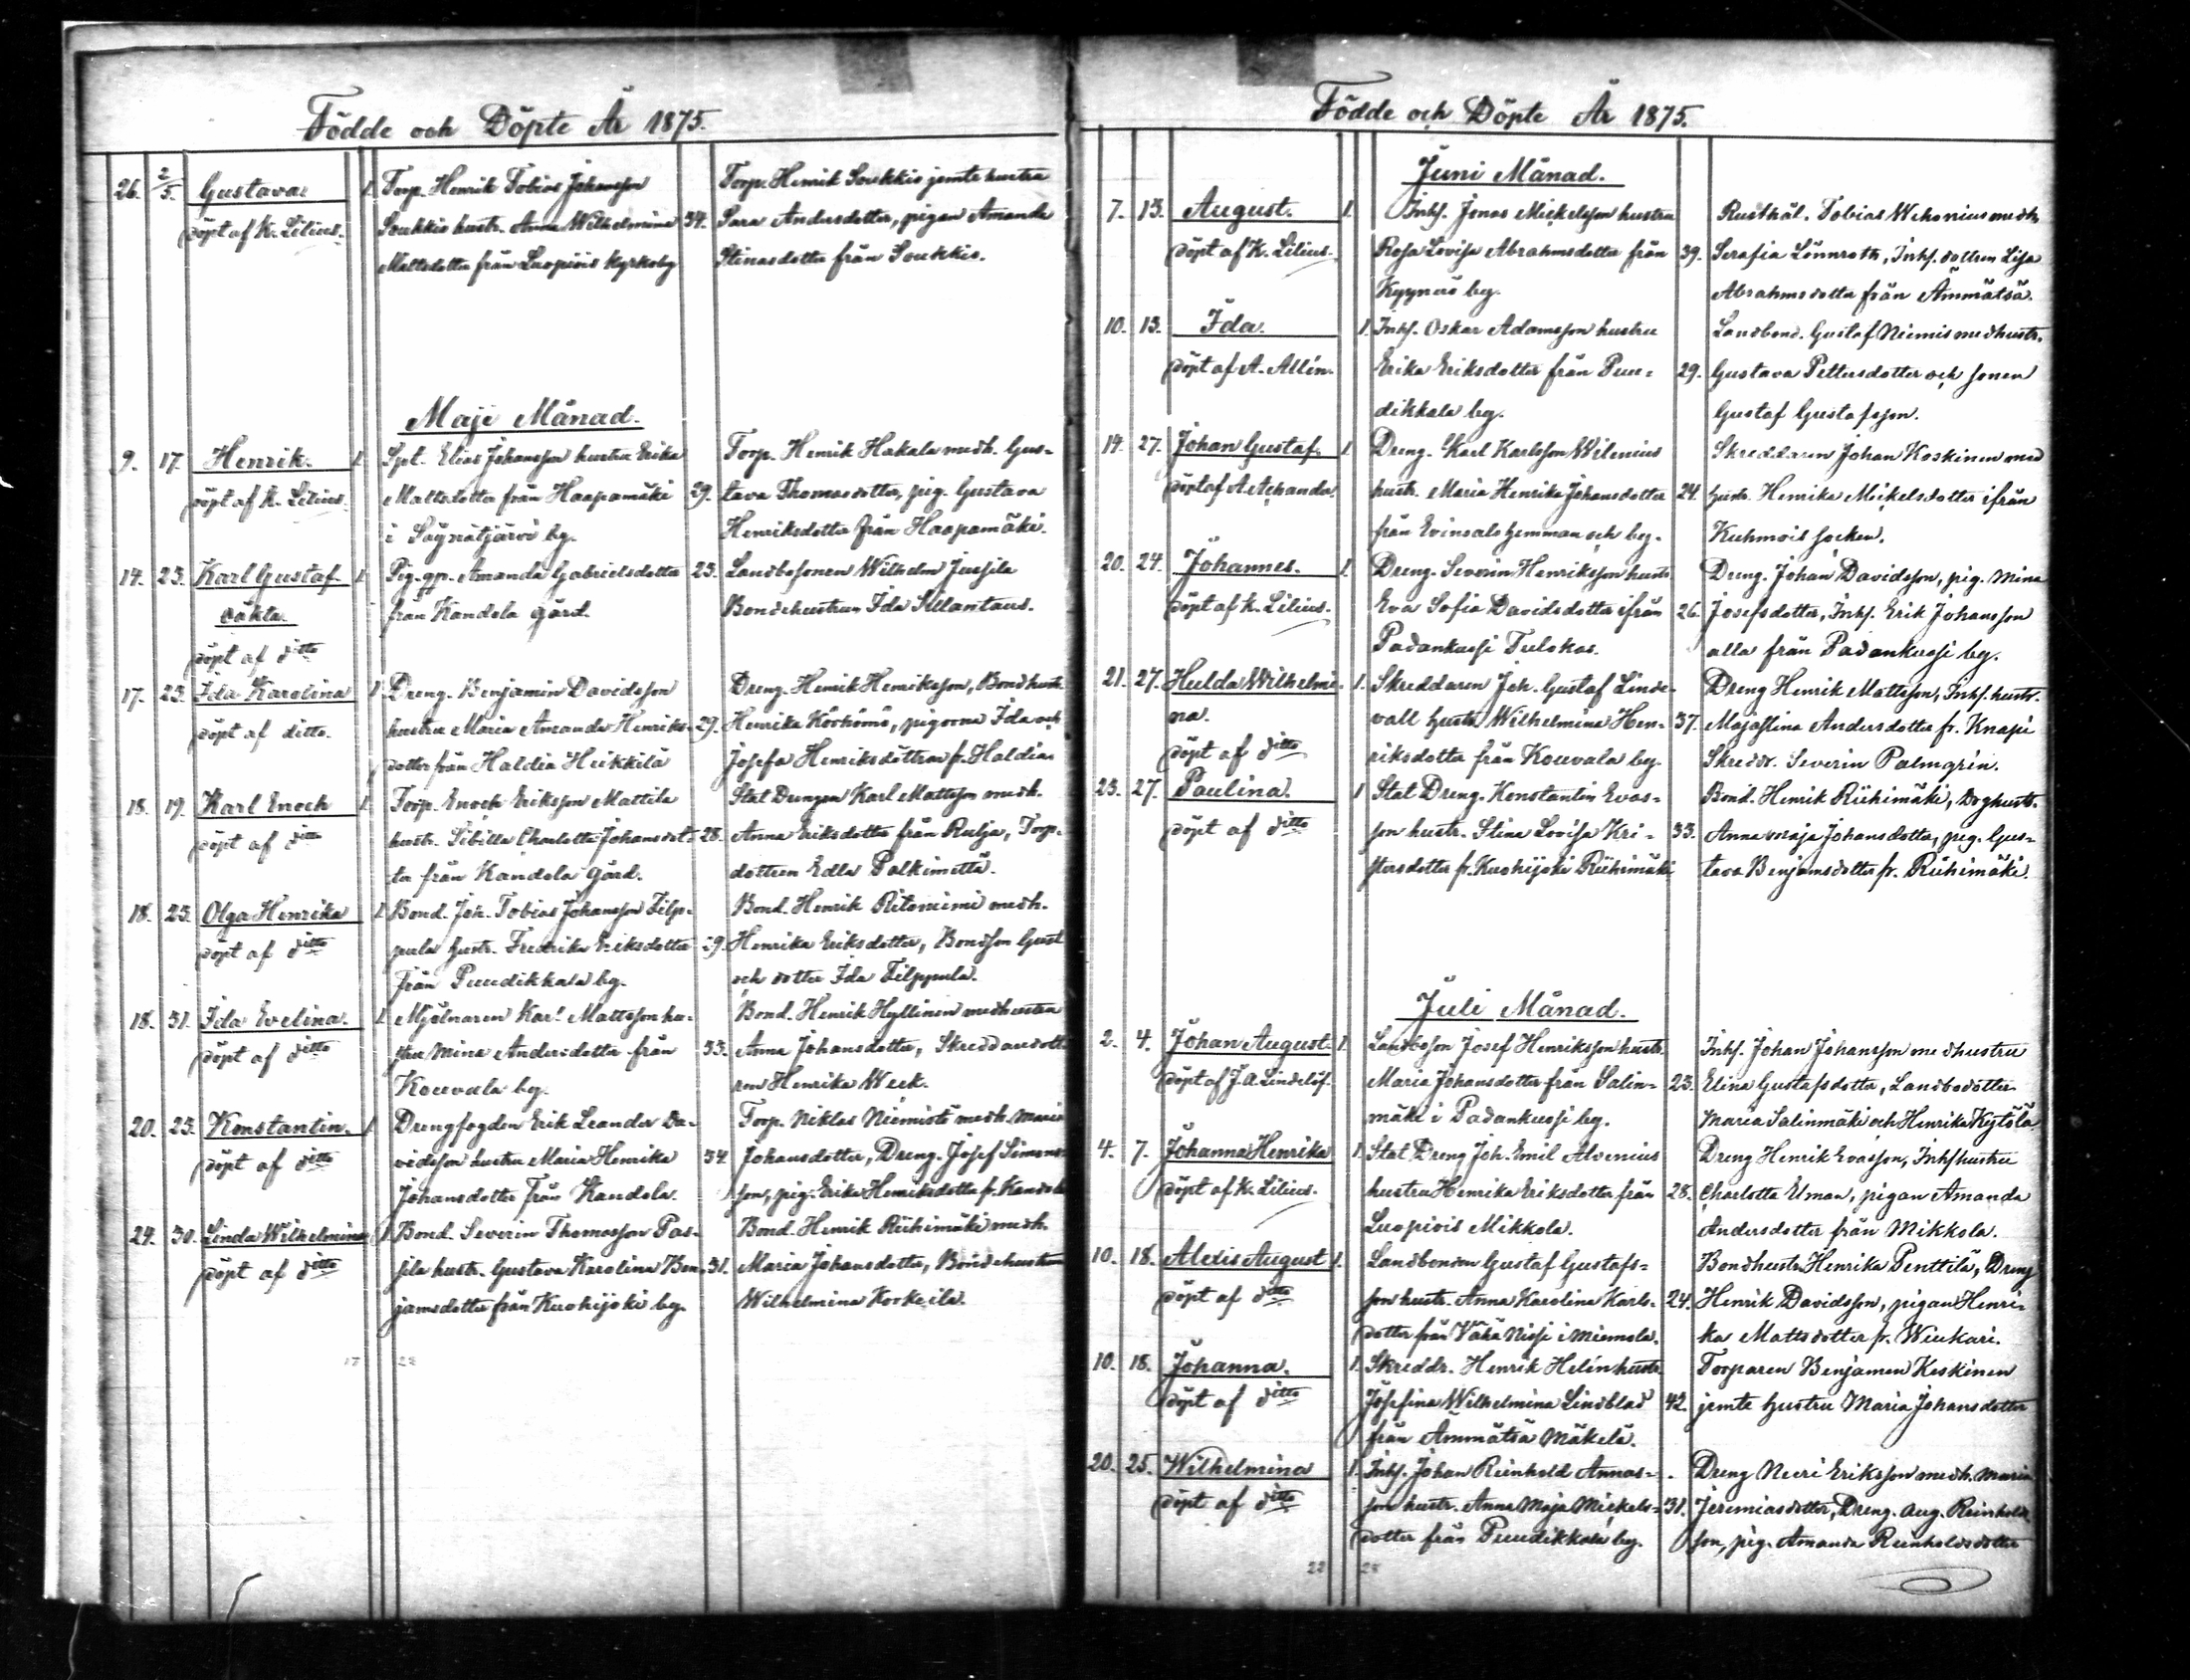 Födde och Döpte År 1875.
26. 2/5. Gustava. 1. Torp. Henrik Tobias Johansson Torp. Henrik Soukkio jemte hustru
döpt af K. Lilius. Soukkio hustr. Anna Wilhelmina 34. Sara Andersdotter, pigan Amanda
Mattsdotter från Luopiois Kyrkoby Stinasdotter från Soukkio.
Maji Månad.
9. 17. Henrik. 1. Spt. Elias Johansson hustru Erika Torp. Henrik Hakala medh. Gus-
döpt af K. Lilius. Mattsdotter från Haapamäki 29. tava Thomasdotter, pig. Gustava
i Säynätjärvi by. Henriksdotter från Haapamäki.
14. 23. Karl Gustaf 1. Pig. gp. Amanda Gabrielsdotter 23. Landbosonen Wilhelm Jussila
oäkta. från Kandola gård. Bondehustrun Ida Sillantaus.
döpt af ditto
17. 23. Ida Karolina 1. Dreng. Benjamin Davidsson Dreng. Henrik Henriksson, Bondhustr.
döpt af ditto. hustru Maria Amanda Henriks- 29. Henrika Körkömö, pigorna Ida och
dotter från Haldia Heikkilä Josefa Henriksdöttrar fr. Haldia
18. 19. Karl Enoch 1. Torp. Enoch Eriksson Mattila Stat Drengen Karl Mattsson medh.
döpt af ditto hustr. Sibilla Charlotta Johansdot- 28. Anna Eriksdotter från Rulja, Torp.
ter från Kandola gård. dottren Edla Palkimettä.
18. 23. Olga Henrika 1. Bond. Joh. Tobias Johansson Filp- Bond. Henrik Ritoniemi medh.
döpt af ditto pula hustr. Fredrika Eriksdotter 29. Henrika Eriksdotter, Bondson Gust.
från Puudikkala by. och dotter Ida Filppula.
18. 31. Ida Evelina. 1. Mjölnaren Karl Mattsson hu- Bond. Henrik Hyllinen medhustru
döpt af ditto stru Mina Andersdotter från 33. Anna Johansdotter, Skreddaredott
Kouvala by. ren Henrika Week.
20. 23. Konstantin. 1 Drengfogden Erik Leander Da- Torp. Niklas Niemistö medh. Maria
döpt af ditto vidsson hustru Maria Henrika 34. Johansdotter, Dreng. Josef Simons-
Johansdotter från Kandola. son, pig. Erika Henriksdotter fr. Kandola
24. 30. Linda Wilhelmina 1 Bond. Severin Thomasson Pas- Bond. Henrik Riihimäki medh.
döpt af ditto sila hustr. Gustava Karolina Ben- 31. Maria Johansdotter, Bondehustrun
jamsdotter från Kuohijoki by. Wilhelmina Korkeila.
17 28
Födde och Döpte År 1875.
Juni Månad.
7. 13. August. 1. Inhs. Jonas Mickelsson hustru Rusthål. Tobias Wehonius medh.
döpt af K. Lilius. Rosa Lovisa Abrahmsdotter från 39. Serafia Lönnroth, Inhs. dottren Lisa
Kyynärö by. Abrahmsdotter från Ämmätsä.
10. 13. Ida. 1. Inhs. Oskar Adamsson hustru Landbond. Gustaf Niemis medhustr.
döpt af A. Allén. Erika Eriksdotter från Puu- 29. Gustava Pettersdotter och sonen
dikkala by. Gustaf Gustafsson.
14. 27. Johan Gustaf. 1. Dreng. Karl Karlsson Wilenius Skreddaren Johan Koskinen med
döpt af A. Achander. hustr. Maria Henrika Johansdotter 24. hustr. Henrika Mickelsdotter ifrån
från Evinsalo hemman och by. Kuhmois socken.
20. 24. Johannes. 1. Dreng. Severin Henriksson hustr. Dreng. Johan Davidsson, pig. Mina
döpt af K. Lilius. Eva Sofia Davidsdotter ifrån 26. Josefsdotter, Inhs. Erik Johansson
Padankussi Tulokas. alla från Padankussi by.
21. 27. Hulda Wilhelmi- 1. Skreddaren Joh. Gustaf Linde- Dreng Henrik Mattsson, Inhs. hustr.
na. vall hustr. Wilhelmina Hen- 37. Majastina Andersdotter fr. Knapi
döpt af ditto riksdotter från Kouvala by. Skreddr. Severin Palmgrén.
23. 27. Paulina. 1 Stat Dreng. Konstantin Evas- Bond. Henrik Riihimäki, Doghustr.
döpt af ditto son hustr. Stina Lovisa Kri- 33. Anna Maja Johansdotter, pig. Gus-
stersdotter fr. Kuohijoki Riihimäki tava Benjamsdotter fr. Riihimäki.
Juli Månad.
2. 4. Johan August 1. Landboson Josef Henriksson hustr. Inhs. Johan Johansson medhustru
döpt af J. A. Lindelöf. Maria Johansdotter från Salin- 23. Elina Gustafsdotter, Landbodotter
mäki i Padankussi by. Maria Salinmäki och Henrika Kytölä
4. 7. Johanna Henrika 1. Stat Dreng Joh. Emil Alvenius Dreng Henrik Evasson, Inhs hustru
döpt af K. Lilius. hustru Henrika Eriksdotter från 28. Charlotta Elman, pigan Amanda
Luopiois Mikkola. Andersdotter från Mikkola.
10. 18. Alexis August 1. Landbonden Gustaf Gustafs- Bondhustr. Henrika Penttilä, Dreng
döpt af ditto son hustr. Anna Karolina Karls- 24. Henrik Davidsson, pigan Henri-
dotter från Vähä Nissi i Miemola. ka Mattsdotter fr. Wiukari.
10. 18. Johanna. 1. Skreddr. Henrik Helin hustr. Torparen Benjamin Keskinen
döpt af ditto Josefina Wilhelmina Lindblad 42. jemte hustru Maria Johansdotter
från Ämmätsä Mäkelä.
20. 25. Wilhelmina 1. Inhs. Johan Reinhold Annas- Dreng Neeri Eriksson medh. Maria
döpt af ditto son hustr. Anna Maja Mickels- 31. Jeremiasdotter, Dreng. Aug. Reinholds
dotter från Puudikkala by. son, pig. Amanda Reinholdsdotter
22 28